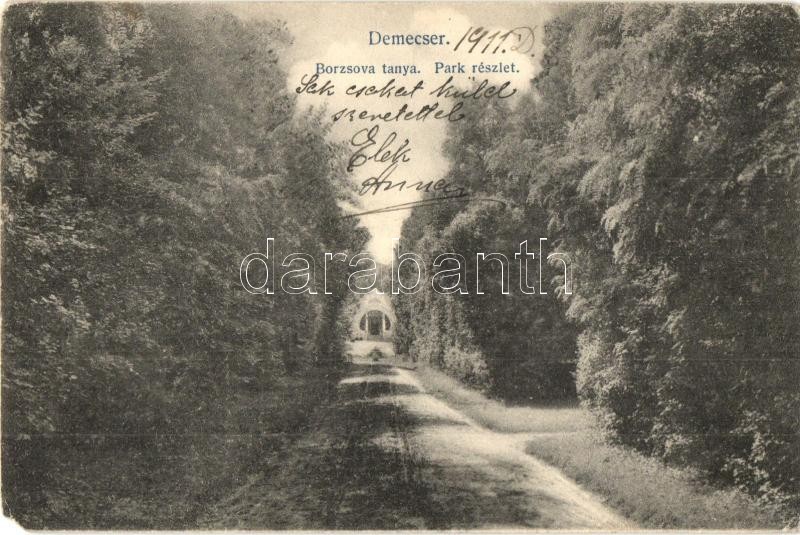 Demecser. 1911.
Borzsova tanya. Park részlet.
Sok csokot küld
szeretettel
Elek
Anna
darabanth